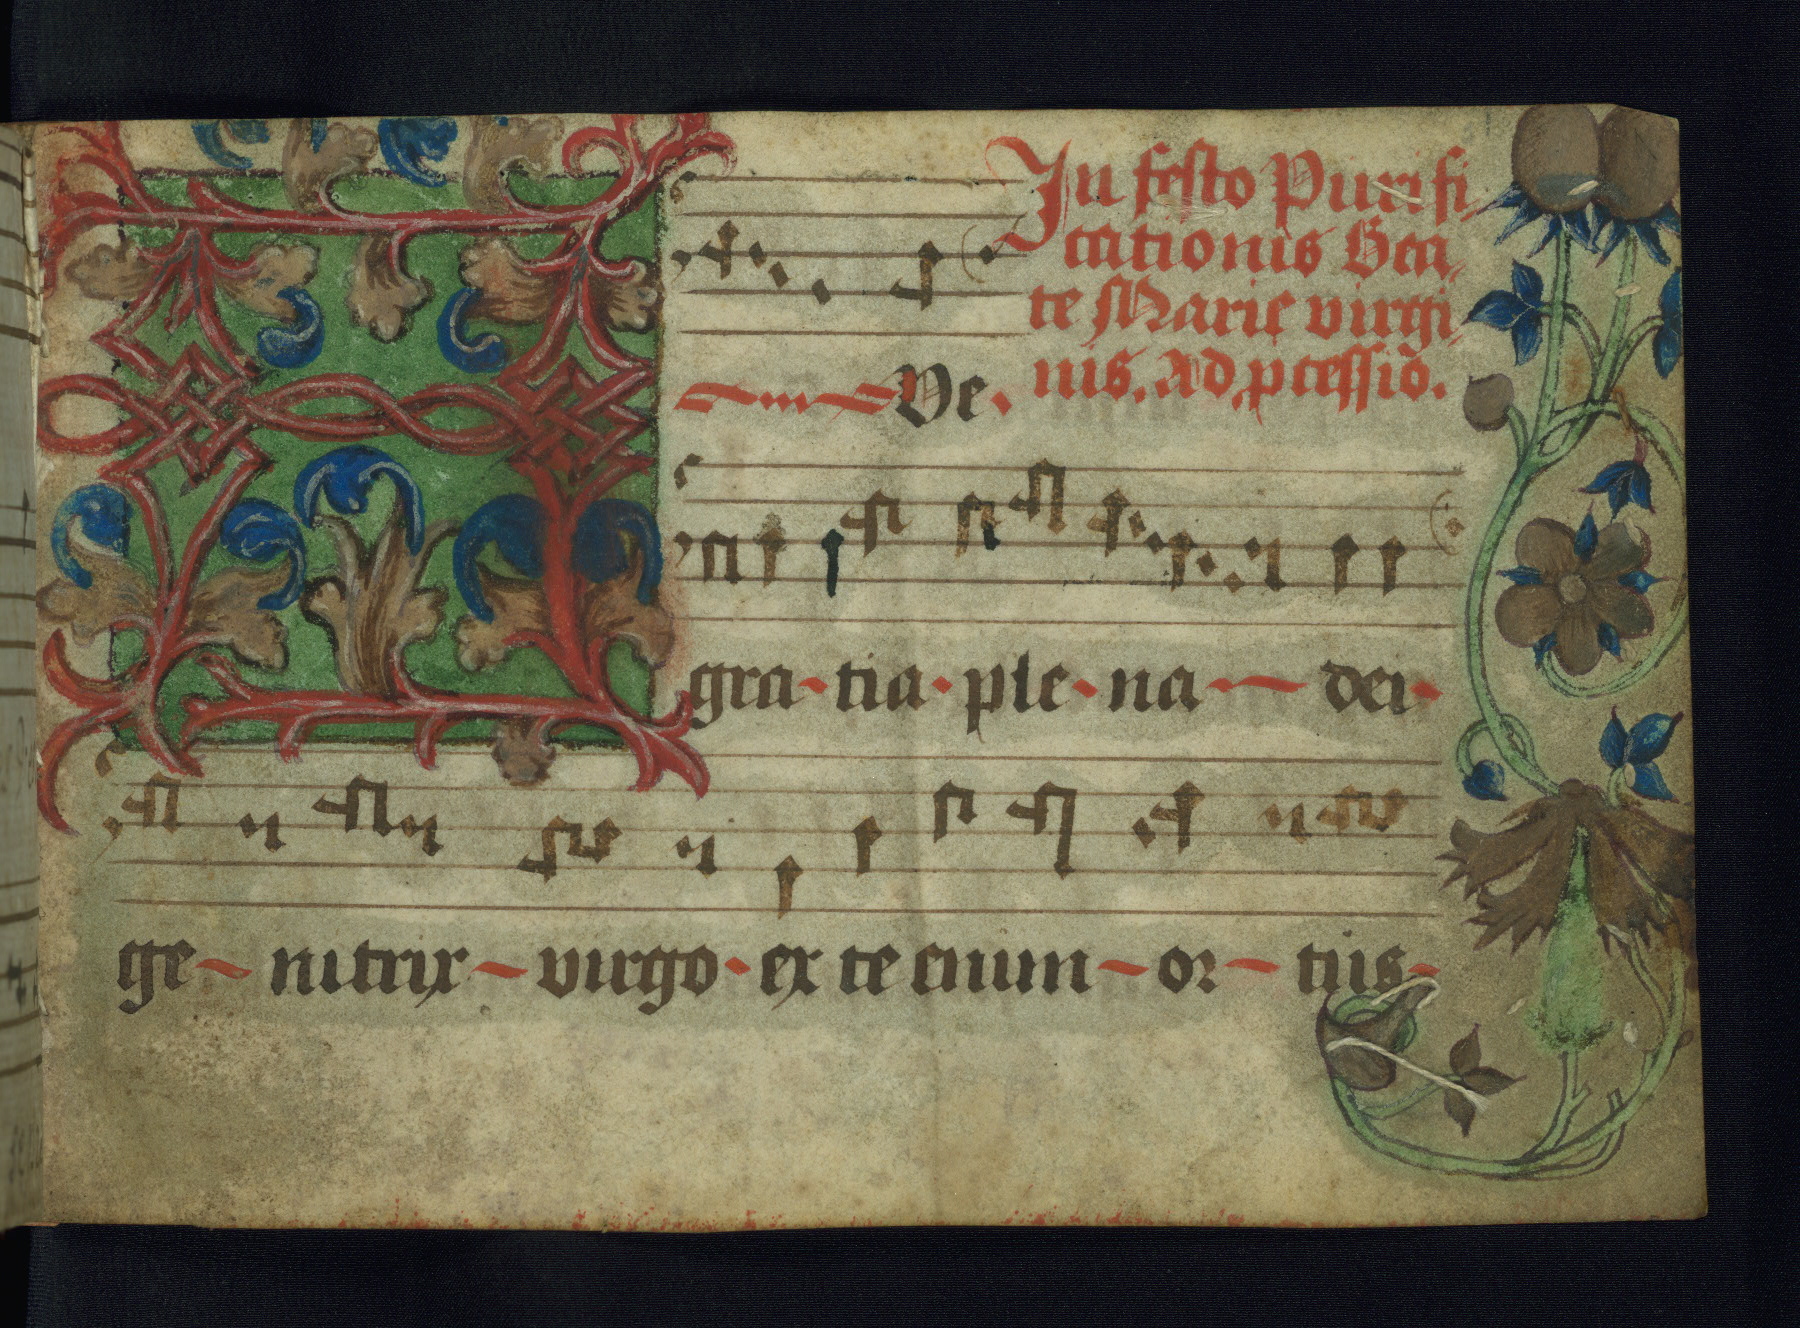 In festo Purifi
cationis Bea
te Marie virgi
nis. Ad pcessiō.
A Ve
gra tia ple na dei
ge nitrix virgo ex te enim or tus